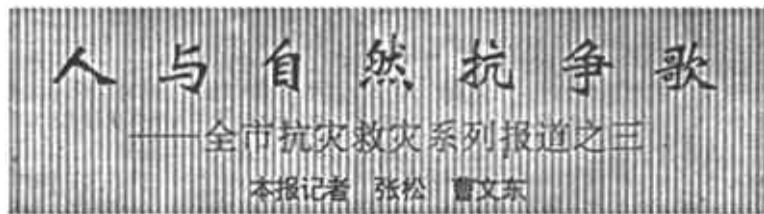 人与自然抗争歌
——全市抗灾救灾系列报道之三
本报记者 张松 曹文东